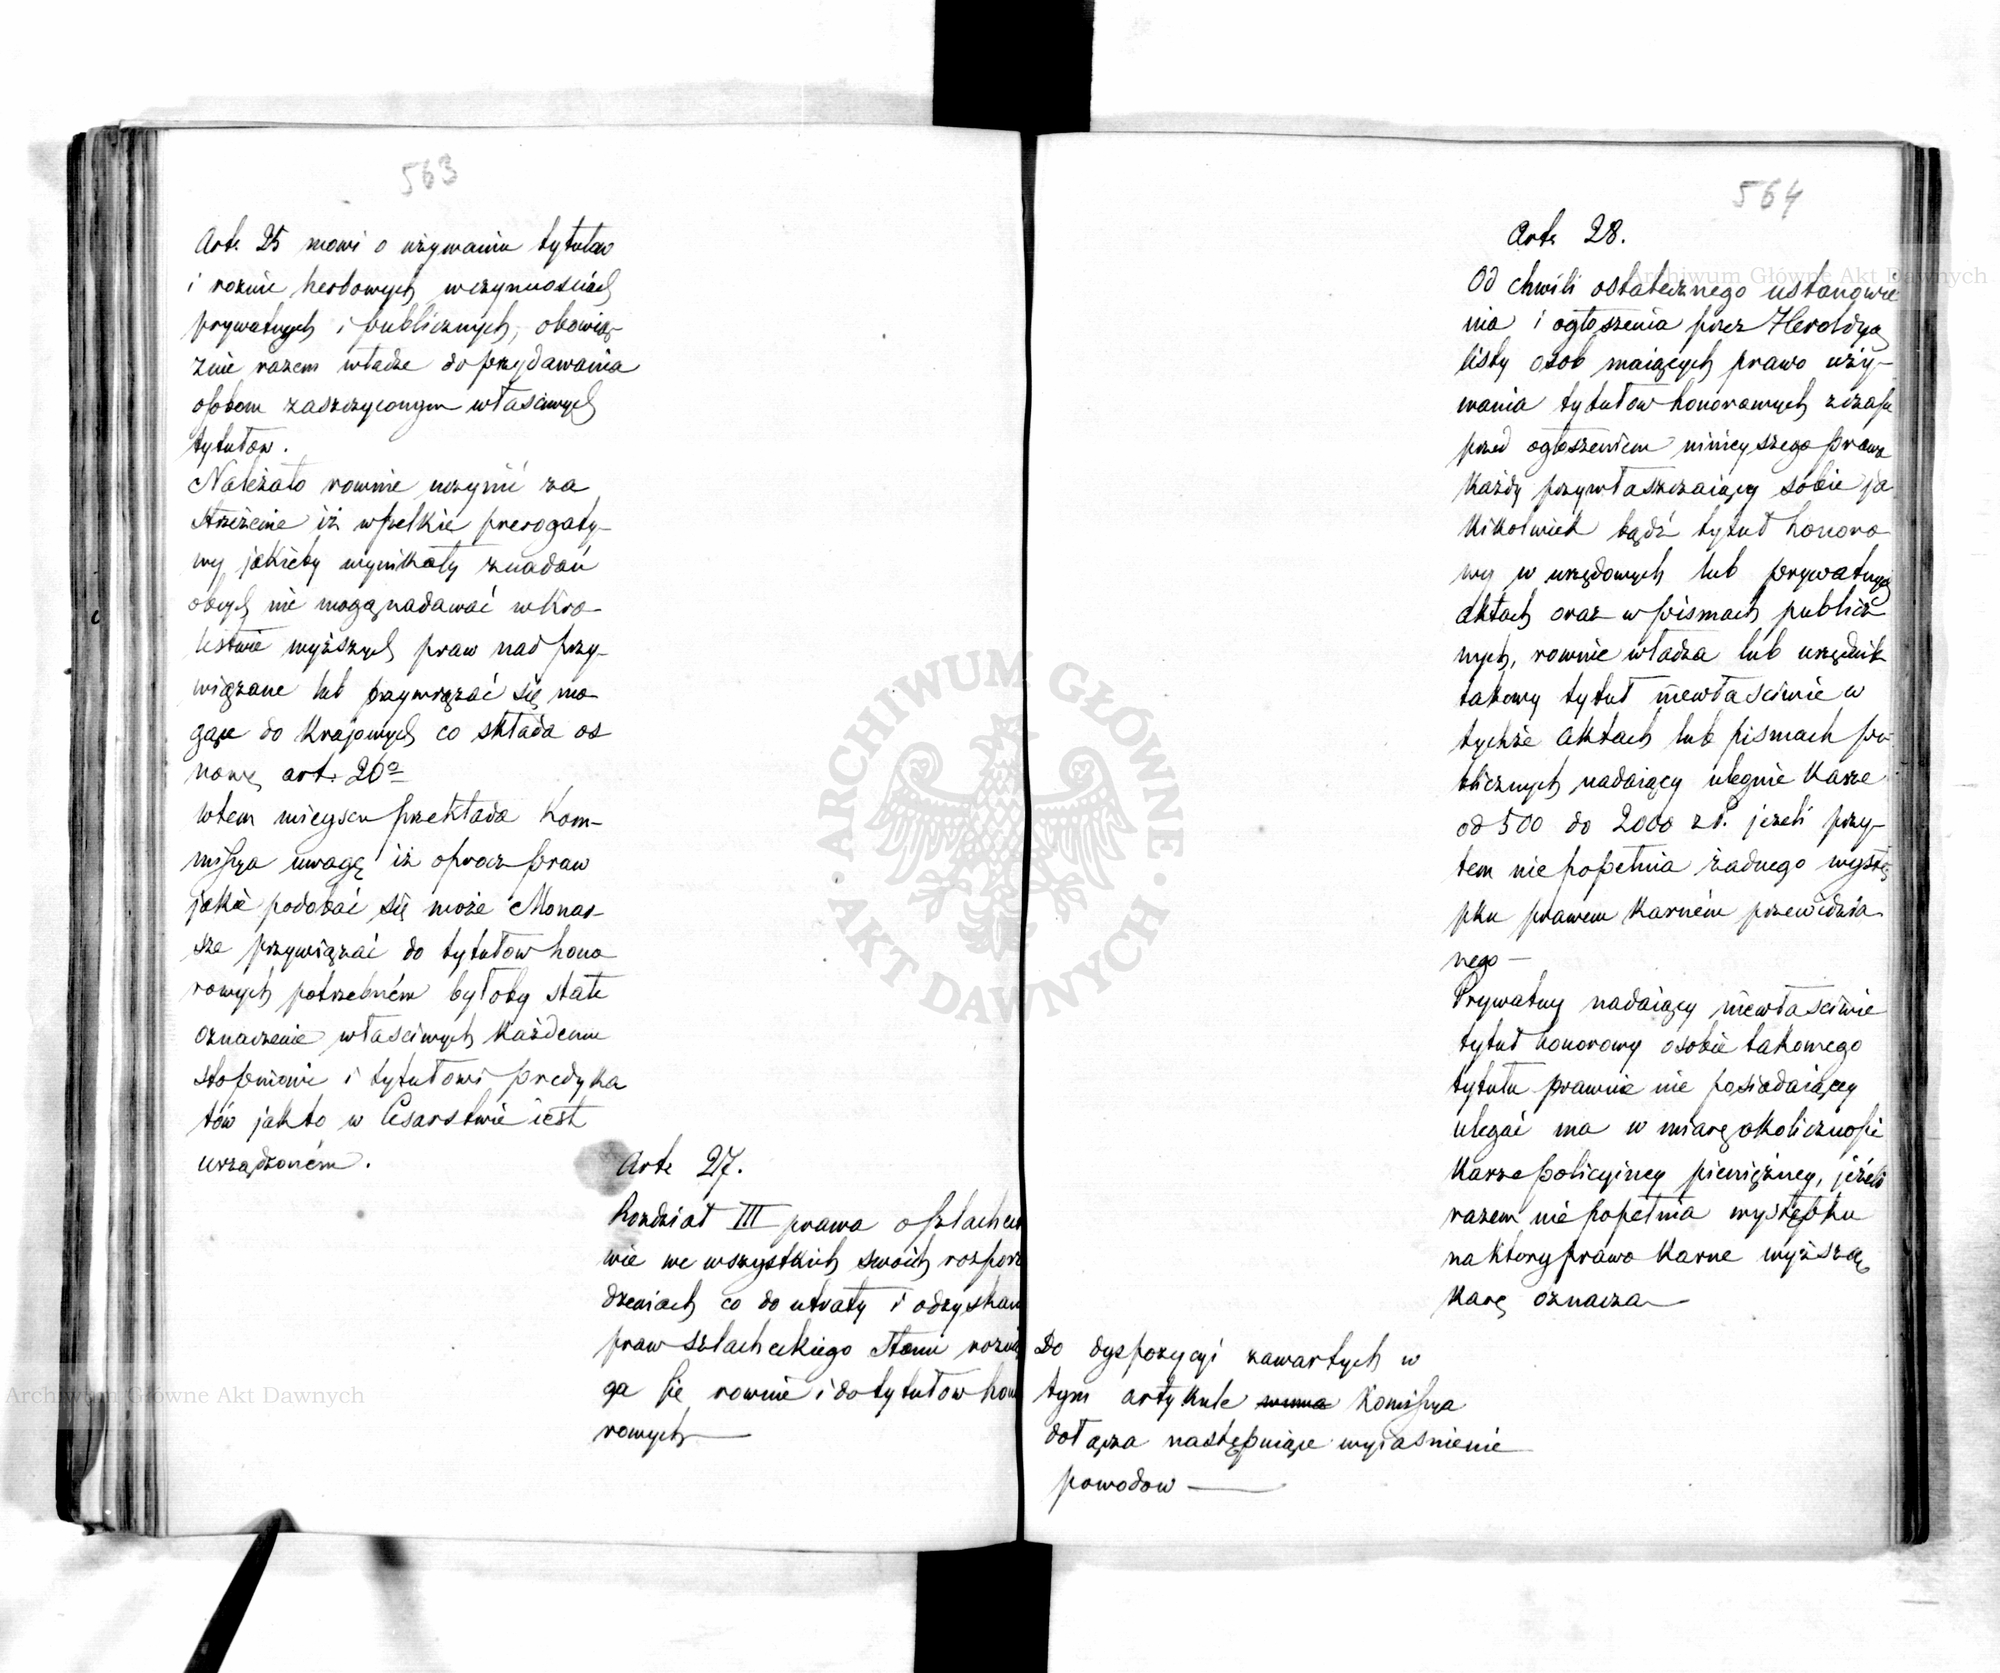 563
Art. 25 mowi o używaniu tytułow
i rownie herbowych w czynnościach
prywatnych i publicznych, obowią-
zuie razem władze do przydawania
osobom zaszczyconym właściwych
tytułow.
Należało rownie uczynić za
strzeżenie iż wszelkie prerogaty-
wy jakieby wynikały z nadań
obcych nie mogą nadawać w Kro-
lestwie wyższych praw nad przy-
wiązane lub przywiązać się mo-
gące do Krajowych co składa os
nowę art. 26o
W tem mieyscu przekłada Kom-
missya uwagę iż oprocz praw
jakie podobać się może Monar-
sze przywiązać do tytułow hono
rowych potrzebném byłoby stałe
oznaczenie właściwych każdemu
stopniowi i tytułowi predyka
tów jak to w Cesarstwie iest
urządzoném.
Art. 27.
Rozdział III prawa o szlachect
wie we wszystkich swoich rozporz
dzeniach co do utraty i odzyskan
praw szlacheckiego Stanu rozcią
ga się rownie i do tytułow hono
rowych —
564
Art. 28.
Od chwili ostatecznego ustanowie
nia i ogłoszenia przez Heroldyą
listy osob maiących prawo uży-
wania tytułow honorowych z czasu
przed ogłoszeniem ninieyszego prawa
Każdy przywłaszczaiący sobie ja
kikolwiek bądź tytuł honoro
wy w urzędowych lub prywatnych
aktach oraz w pismach publicz
nych, rownie władza lub urzędnik
takowy tytuł niewłaściwie w
tychże aktach lub pismach pu
blicznych nadaiący ulegnie karze
od 500 do 2000 zł. jeżeli przy-
tem nie popełnia żadnego wystę
pku prawem karném przewidzia
nego —
Prywatny nadaiący niewłaściwie
tytuł honorowy osobie takowego
tytułu prawnie nie posiadaiącey
ulegać ma w miarę okoliczności
karze policyiney pieniężney, jeżeli
razem nie popełnia występku
na ktory prawo karne wyższą
karę oznacza —
Do dyspozycyi zawartych w
tym artykule Komissya
dołącza następuiące wyiaśnienie
powodow —
ARCHIWUM GŁÓWNE · AKT DAWNYCH ·
Archiwum Główne Akt Dawnych
Archiwum Główne Akt Dawnych